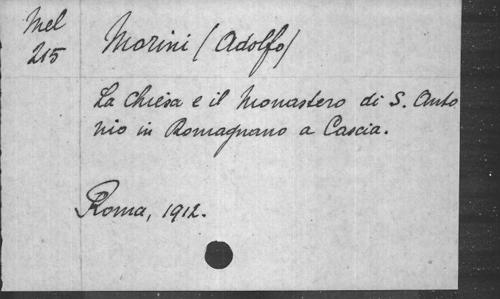 Mel
215
Morini (Adolfo)
La Chiesa e il Monastero di S. Anto
nio in Romagnano a Cascia.
Roma, 1912.